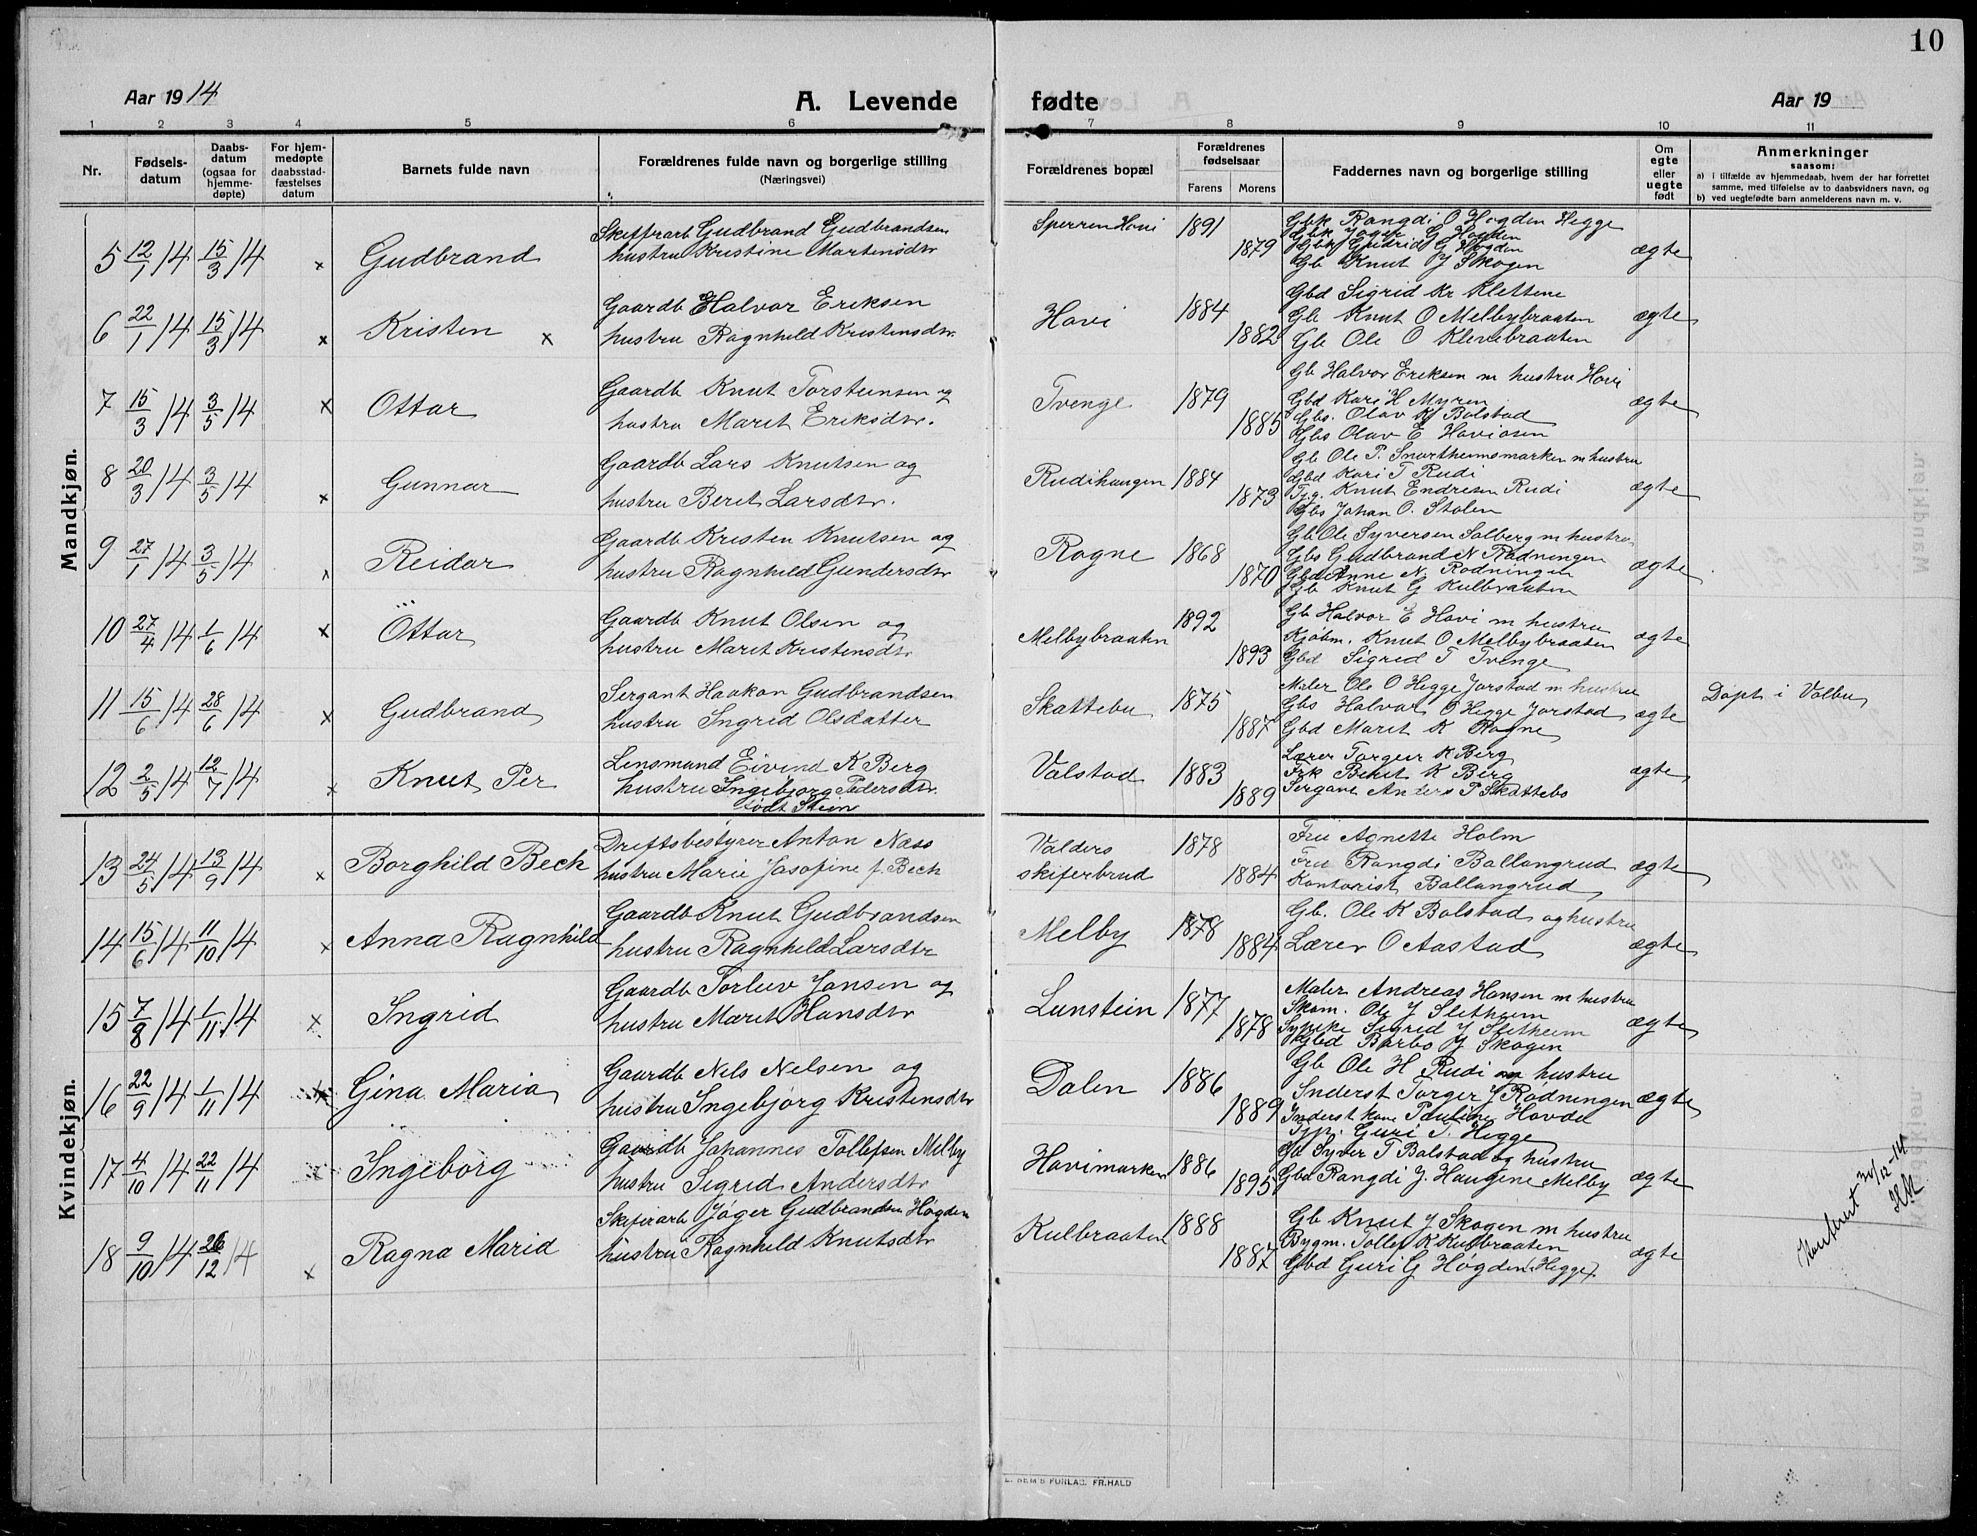 10
Aar 1914
A. Levende
fødte
Aar 19
1 2 3 4 5 6 7 8 9 10 11
Nr.
Fødsels-
datum
Daabs-
datum
(ogsaa for
hjemme-
døpte)
For hjem-
medøpte
daabsstad-
fæstelses
datum
Barnets fulde navn
Forældrenes fulde navn og borgerlige stilling
(Næringsvei)
Forældrenes bopæl
Forældrenes
fødselsaar
Farens Morens
Faddernes navn og borgerlige stilling
Om
egte
eller
uegte
født
Anmerkninger
saasom:
a) i tilfælde av hjemmedaab, hvem der har forrettet
samme, med tilføielse av to daabsvidners navn, og
b) ved uegtefødte barn anmelderens navn m. v.
Mandkjøn.
5 12/1 14 15/3 14 x Gudbrand
Skifrarb Gudbrand Gudbrandsen
hustru Kristine Martensdtr
Sperren Hovi 1891 1879
Gbk Rangdi O Hogden Hegge
Gbk Joger G Hogden
Gbk Gudrid G Hogden
Gb Knut J Skogen
ægte
6 22/1 14 15/3 14 x Kristen x
Gaardb Halvor Eriksen
hustru Ragnhild Kristensdtr.
Hovi 1884 1882
Gbd Sigrid Kr Klettene
Gb Knut O Melbybraaten
Gb Ole O Klevebraaten
ægte
7 15/3 14 3/5 14 x Ottar
Gaardb Knut Torsteinsen og
hustru Marit Eriksdtr.
Tvenge 1879 1885
Gb Halvor Eriksen m hustru Hovi
Gbd Kari H Myren
Gbs. Olav K Bolstad
Gbs Olav E Haviosen
ægte
8 20/3 14 3/5 14 x Gunnar
Gaardb Lars Knutsen og
hustru Berit Larsdtr.
Rudihaugen 1884 1873
Gb Ole P. Snortheimsmarken m hustru
Gbd Kari T Rudi
Tjg. Knut Endresen Rudi
Gbs Johan O. Stolen
ægte
9 27/1 14 3/5 14 x Reidar
Gaardb Kristen Knutsen og
hustru Ragnhild Gundersdtr
Rogne 1868 1870
Gb Ole Syversen Solberg m hustru
Gbs Gudbrand N Rodningen
Gbd Anne N. Rodningen
Gb Knut G Kulbraaten
ægte
10 27/4 14 1/6 14 x Ottar
Gaardb Knut Olsen og
hustru Marit Kristensdtr
Melbybraaten 1892 1893
Gb Halvor E Hovi m hustru
Kjøbm. Knut O Melbybraaten
Gbd Sigrid T Tvenge
ægte
11 15/6 14 28/6 14 x Gudbrand
Sergant Haakon Gudbrandsen
hustru Ingrid Olsdatter
Skattebu 1875 1887
Maler Ole O Hegge Jorstad m hustru
Gbs Halvar O Hegge Jorstad
Gbd Marit K Rogne
ægte
Døpt i Volbu
12 2/5 14 12/7 14 x Knut Per
Lensmand Eivind K Berg
hustru Ingebjorg Pedersdtr.
født Stein
Valstad 1883 1889
Lærer Torgeir K Berg
Frk Berit K Berg
Sergant Anders P Skattebo
ægte
Kvindekjøn.
13 24/5 14 13/9 14 x Borghild Bech
Driftsbestyrer Anton Næss
hustru Marie Josofine f. Bech
Valders
skiferbrud 1878 1884
Fru Agnette Holm
Fru Rangdi Ballangrud
Kontorist Ballangrud
ægte
14 15/6 14 11/10 14 x Anna Ragnhild
Gaardb Knut Gudbrandsen
hustru Ragnhild Larsdtr
Melby 1878 1884
Gb. Ole K Bolstad og hustru
Lærer O Aastad
ægte
15 7/8 14 1/11 14 x Ingrid
Gaardb Torleiv Jonsen og
hustru Marit Hansdtr
Lunstein 1877 1878
Maler Andreas Hansen m hustru
Skom. Ole J Sletheim
Sypike Sigrid J Sletheim
Gbd Barbo J Skogen
ægte
16 22/9 14 1/11 14 x Gina Maria
Gaardb Nels Nelsen og
hustru Ingebjorg Kristensdtr
Dalen 1886 1889
Gb Ole H Rudi og hustru
Inderst Torger J Rodningen
Inderst kone Pauline Hovde
Tjp. Guri T. Hegge
ægte
17 4/10 14 22/11 14 x Ingeborg
Gaardb Johannes Tollefsen Melby
hustru Sigrid Andersdtr
Hovimarken 1886 1895
Gb Syver T Bolstad og hustru
Gbd Rangdi J. Haugene Melby
ægte
18 9/10 14 26/12 14 x Ragna Marid
Skiferarb Jøger Gudbrandsen Høgden
hustru Ragnhild Knutsdtr
Kulbraaten 1888 1887
Gb Knut J Skogen m hustru
Bygm. Tollef K Kulbraaten
Gbd Guri G Høgden (Hegge)
ægte
Konferert 30/12-14
E. SEM'S FORLAG. FR.HALD